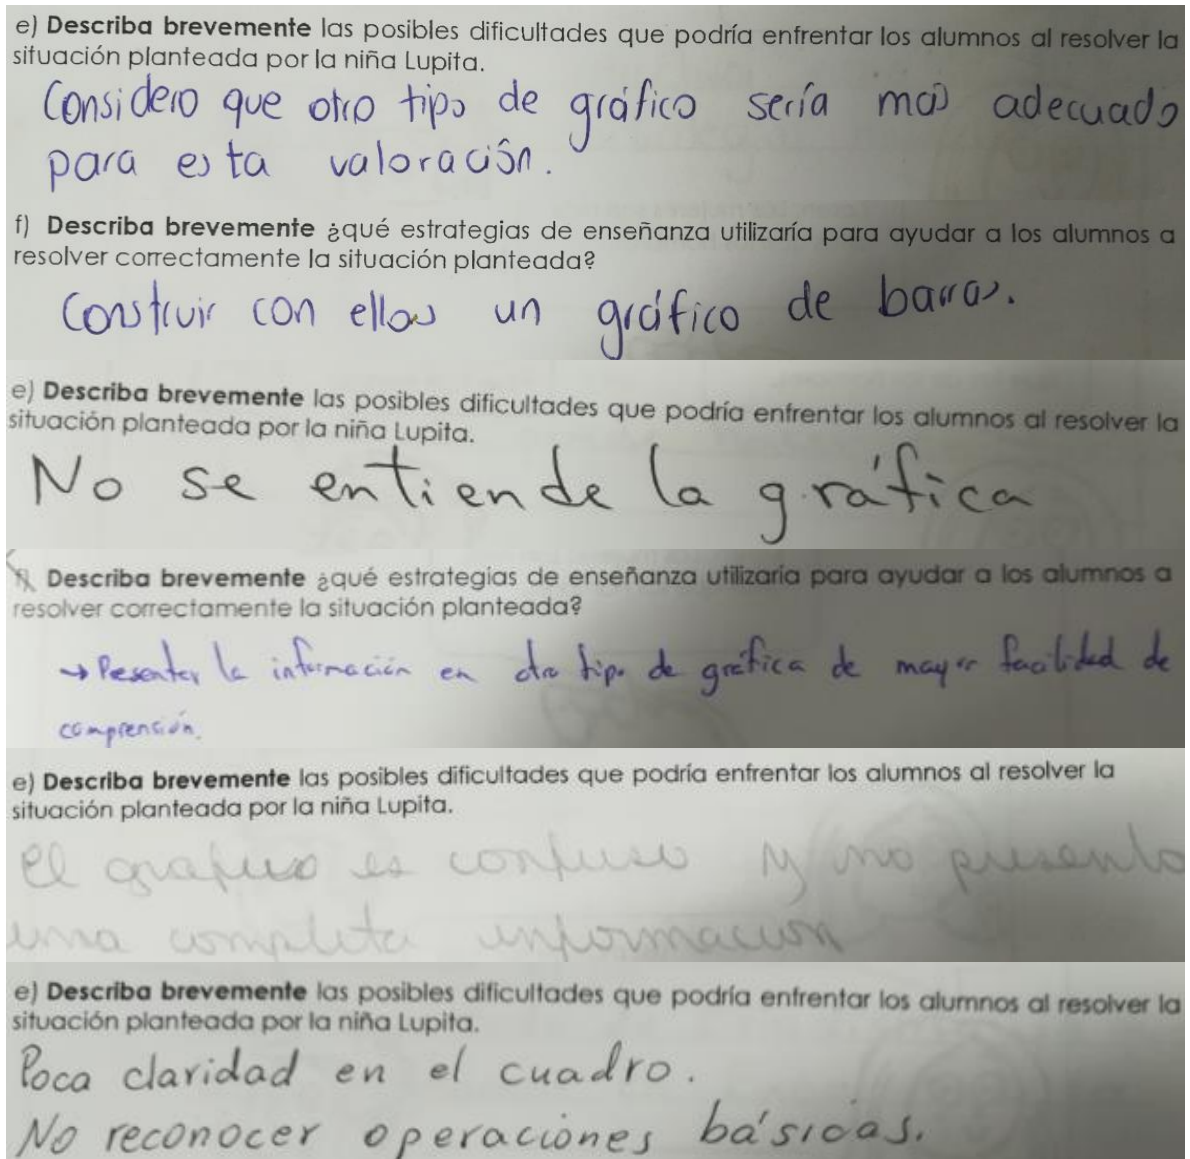 e) Describa brevemente las posibles dificultades que podría enfrentar los alumnos al resolver la
situación planteada por la niña Lupita.
Considero que otro tipo de gráfico sería mas adecuado
para esta valoración.
f) Describa brevemente ¿qué estrategias de enseñanza utilizaría para ayudar a los alumnos a
resolver correctamente la situación planteada?
Construir con ellos un gráfico de barras.
e) Describa brevemente las posibles dificultades que podría enfrentar los alumnos al resolver la
situación planteada por la niña Lupita.
No se entiende la gráfica
f) Describa brevemente ¿qué estrategias de enseñanza utilizaría para ayudar a los alumnos a
resolver correctamente la situación planteada?
→ Presentar la información en otro tipo de gráfica de mayor facilidad de
comprención.
e) Describa brevemente las posibles dificultades que podría enfrentar los alumnos al resolver la
situación planteada por la niña Lupita.
El grafico es confuso y no presenta
una completa información
e) Describa brevemente las posibles dificultades que podría enfrentar los alumnos al resolver la
situación planteada por la niña Lupita.
Poca claridad en el cuadro.
No reconocer operaciones básicas.